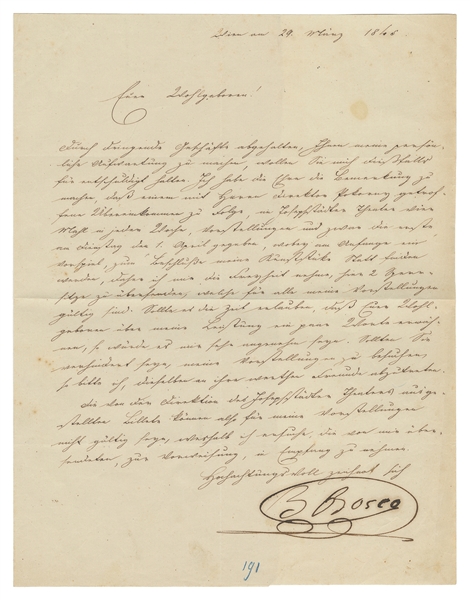 Wien am 29. März 184
Euer Wohlgeboren!
Durch dringende Geschäfte abgehalten, Ihnen meine persön-
liche Aufwartung zu machen, wollen Sie mich dießfalls
für entschuldigt halten. Ich habe die Ehre die Bemerkung zu
machen, daß einem mit Herrn Direktor Pokorny getrof-
fenen Übereinkommen zu Folge, im Josephstädter Theater vier
Mahl in jeder Woche, Vorstellungen und zwar die erste
am Dienstag den 1. April gegeben, wobey am Anfange ein
Vorspiel, zum Beschluße meine Kunststücke Statt finden
werden, daher ich mir die Freyheit nehme, hier 2 Sperr-
sitze zu übersenden, welche für alle meine Vorstellungen
gültig sind. Sollte es die Zeit erlauben, daß Euer Wohl-
geboren über meine Leistung ein paar Worte erwäh-
nen, so würde es mir sehr angenehm seyn. Sollten Sie
verhindert seyn, meine Vorstellungen zu besuchen,
so bitte ich, dieselben an ihre werthen Freunde abzutreten.
Die von der Direktion des Josephstädter Theaters ausge-
stellten Billets können also für meine Vorstellungen
nicht gültig seyn, weshalb ich ersuche, die von mir über-
sendeten, zur Vorweisung, in Empfang zu nehmen.
Hochachtungsvoll zeichnet sich
B Bosco
191